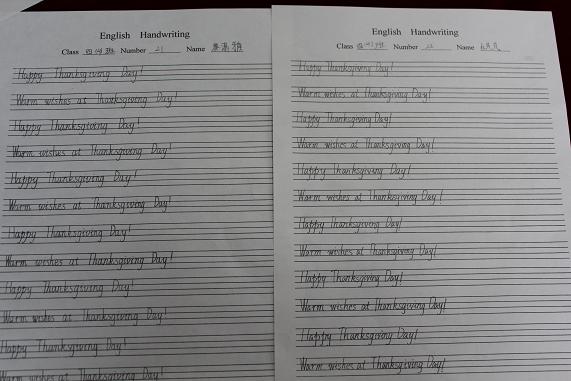 English Handwriting
Class 四(4)班 Number 21 Name
Happy Thanksgiving Day!
Warm wishes at Thanksgiving Day!
Happy Thanksgiving Day!
Warm wishes at Thanksgiving Day!
Happy Thanksgiving Day!
Warm wishes at Thanksgiving Day!
Happy Thanksgiving Day!
Warm wishes at Thanksgiving Day!
Happy Thanksgiving Day!
Warm wishes at Thanksgiving Day!
Happy Thanksgiving Day!
Warm wishes at Thanksgiving Day!
English Handwriting
Class Number Name
Happy Thanksgiving Day!
Warm wishes at Thanksgiving Day!
Happy Thanksgiving Day!
Warm wishes at Thanksgiving Day!
Happy Thanksgiving Day!
Warm wishes at Thanksgiving Day!
Happy Thanksgiving Day!
Warm wishes at Thanksgiving Day!
Happy Thanksgiving Day!
Warm wishes at Thanksgiving Day!
Happy Thanksgiving Day!
Warm wishes at Thanksgiving Day!